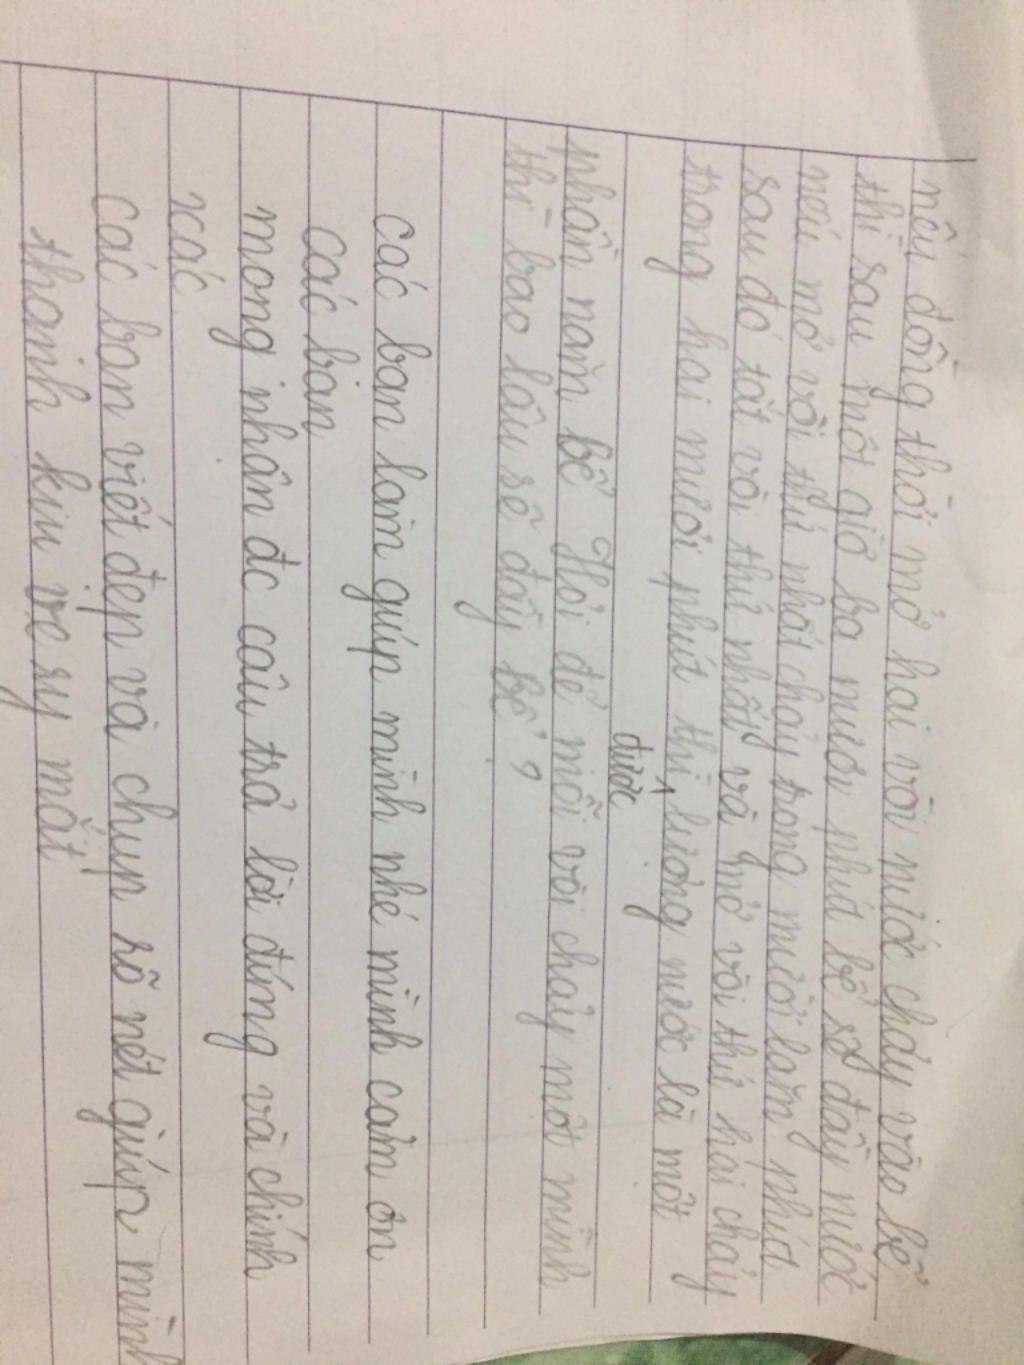 nếu đồng thời mở hai vòi nước chảy vào bể
thì sau một giờ ba mươi phút bể sẽ đầy nước
nếu mở vòi thứ nhất chảy trong mười lăm phút
sau đó tắt vòi thứ nhất và mở vòi thứ hai chảy
trong hai mươi phút thì được lượng nước là một
phần năm bể Hỏi để mỗi vòi chảy một mình
thì bao lâu sẽ đầy bể?
các bạn làm giúp mình nhé mình cảm ơn
các bạn
mong nhân đc câu trả lời đúng và chính
xác
các bạn viết đẹp và chụp rõ nét giúp mình
thanh kiu ve ry mắt